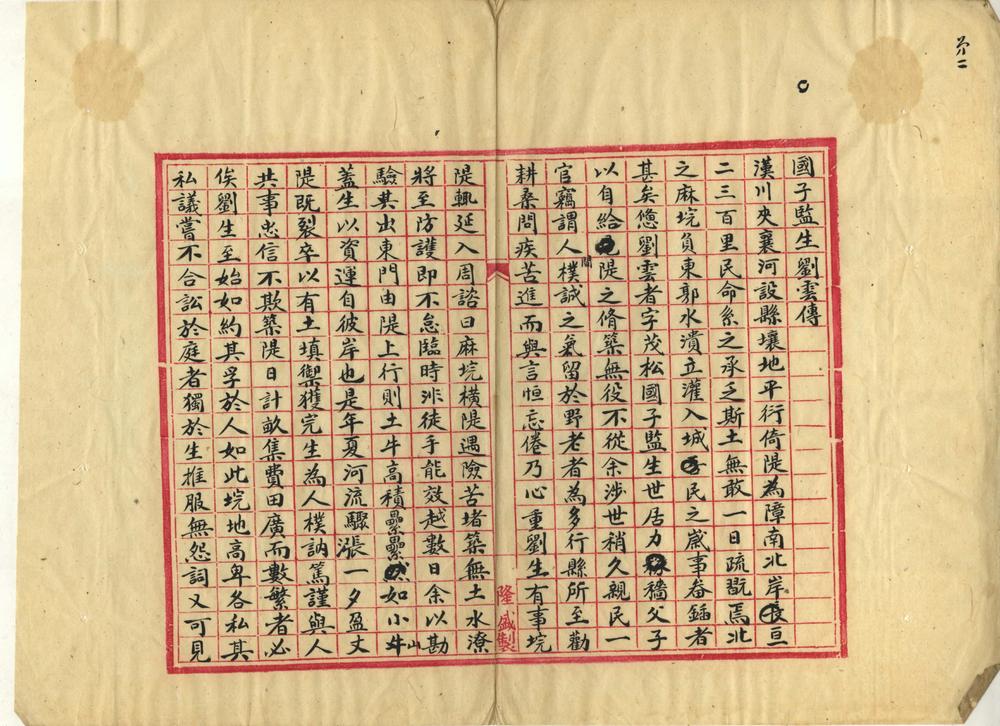 第二
國子監生劉雲傳
漢川夾襄河設縣壤地平衍倚隄為障南北岸亘
二三百里民命系之承乏斯土無敢一日疏翫焉北
之麻垸負東郭水潰立灌入城民之歲事畚鍤者
甚矣憊劉雲者字茂松國子監生世居力穡父子
以自給隄之脩築無役不從余涉世稍久親民一
官竊謂人樸誠之氣留於野老者為多行縣所至勸
間
耕桑問疾苦進而與言恒忘倦乃心重劉生有事垸
隄輒延入周諮曰麻垸橫隄遇險苦堵築無土水潦
將至防護即不怠臨時涉徒手能效越數日余以勘
驗其出東門由隄上行則土牛高積纍纍如小山
蓋生以資運自彼岸也是年夏河流驟漲一夕盈丈
隄既裂卒以有土填禦獲完生為人樸訥篤謹與人
共事忠信不欺築隄日計畝集費田廣而數繁者必
俟劉生至始如約其孚於人如此垸地高卑各私其
私議嘗不合訟於庭者獨於生推服無怨詞又可見
隆盛製